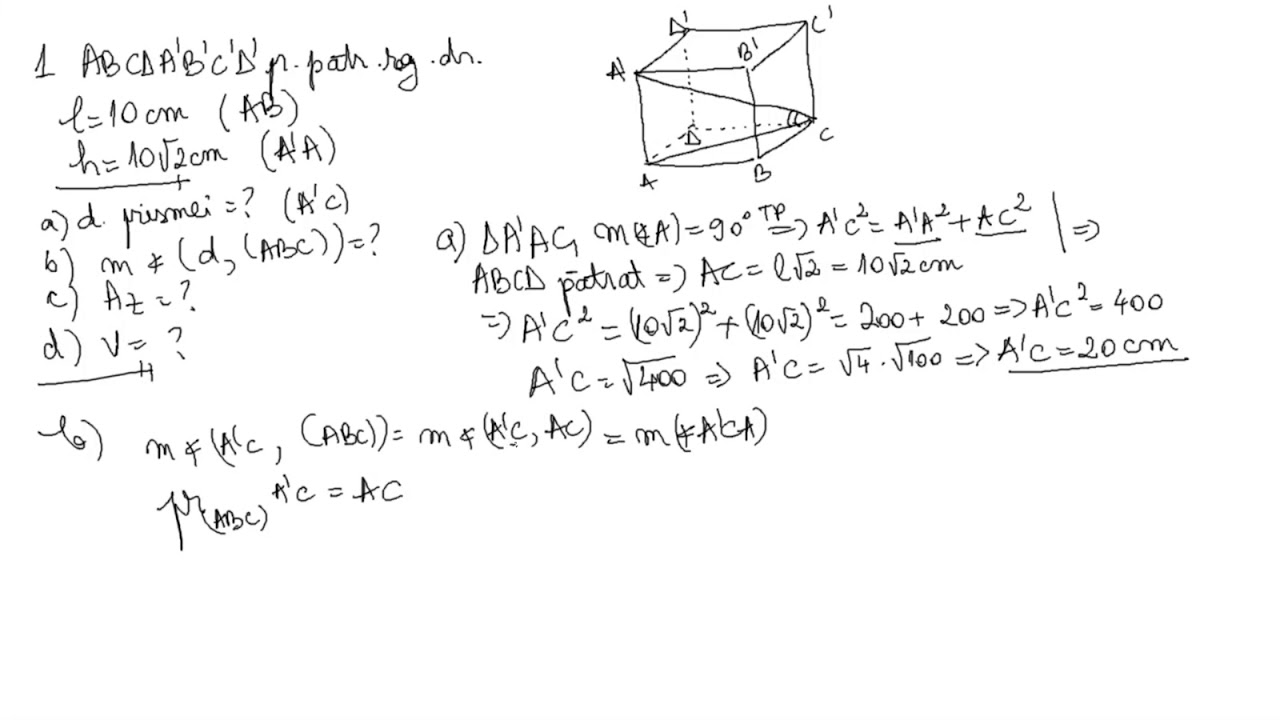 1 ABCDA'B'C'D' p. patr. reg. dr.
l=10cm (AB)
h=10√2cm (A'A)
a) d. prismei=? (A'C)
b) m∢(d,(ABC))=?
c) At=?
d) V=?
D' C' B' A' D C A B
a) ΔA'AC, m(∢A)=90° TP⇒ A'C²=A'A²+AC² | ⇒
ABCD pătrat ⇒ AC=l√2=10√2cm
⇒ A'C²=(10√2)²+(10√2)²=200+200 ⇒ A'C²=400
A'C=√400 ⇒ A'C=√4·√100 ⇒ A'C=20cm
b) m∢(A'C,(ABC))=m∢(A'C,AC)=m(∢A'CA)
pr(ABC) A'C=AC